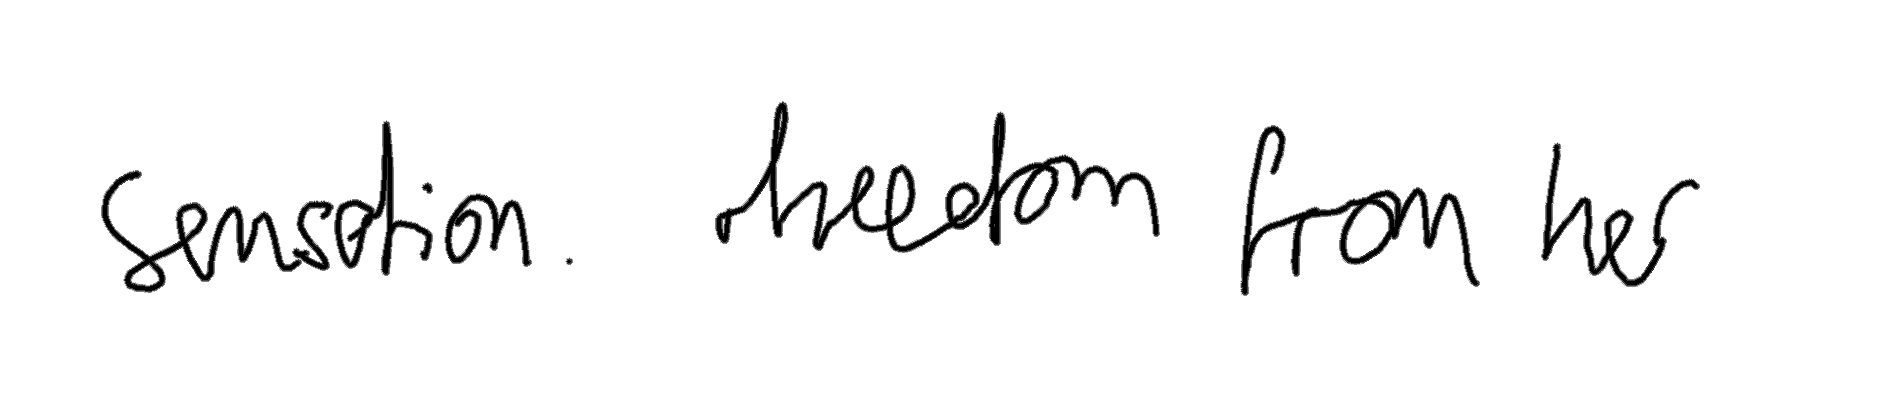 sensation. freedom from her